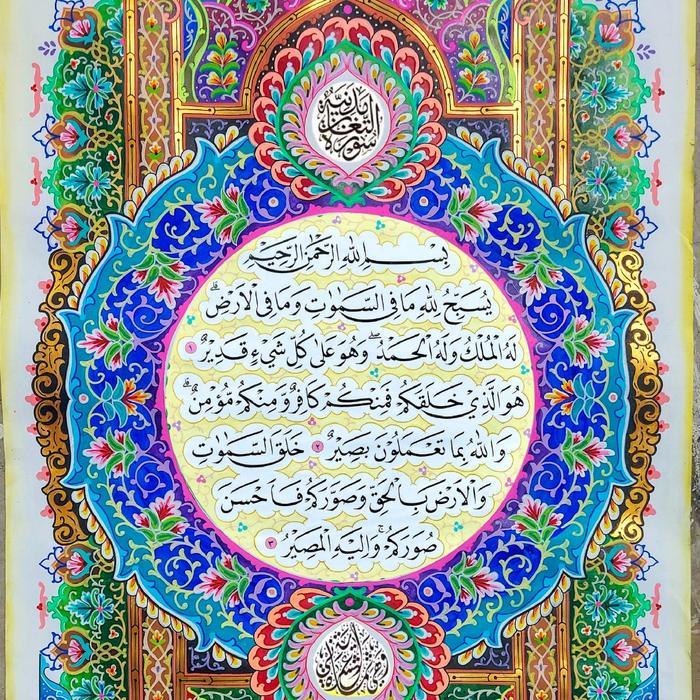 سورة التغابن مدنية
بِسْمِ اللهِ الرَّحْمٰنِ الرَّحِيْمِ
يُسَبِّحُ لِلّٰهِ مَا فِى السَّمٰوٰتِ وَمَا فِى الْاَرْضِۚ
لَهُ الْمُلْكُ وَلَهُ الْحَمْدُۖ وَهُوَ عَلٰى كُلِّ شَيْءٍ قَدِيْرٌ ١
هُوَ الَّذِيْ خَلَقَكُمْ فَمِنْكُمْ كَافِرٌ وَّمِنْكُمْ مُؤْمِنٌۗ
وَاللهُ بِمَا تَعْمَلُوْنَ بَصِيْرٌ ٢ خَلَقَ السَّمٰوٰتِ
وَالْاَرْضَ بِالْحَقِّ وَصَوَّرَكُمْ فَاَحْسَنَ
صُوَرَكُمْۚ وَاِلَيْهِ الْمَصِيْرُ ٣